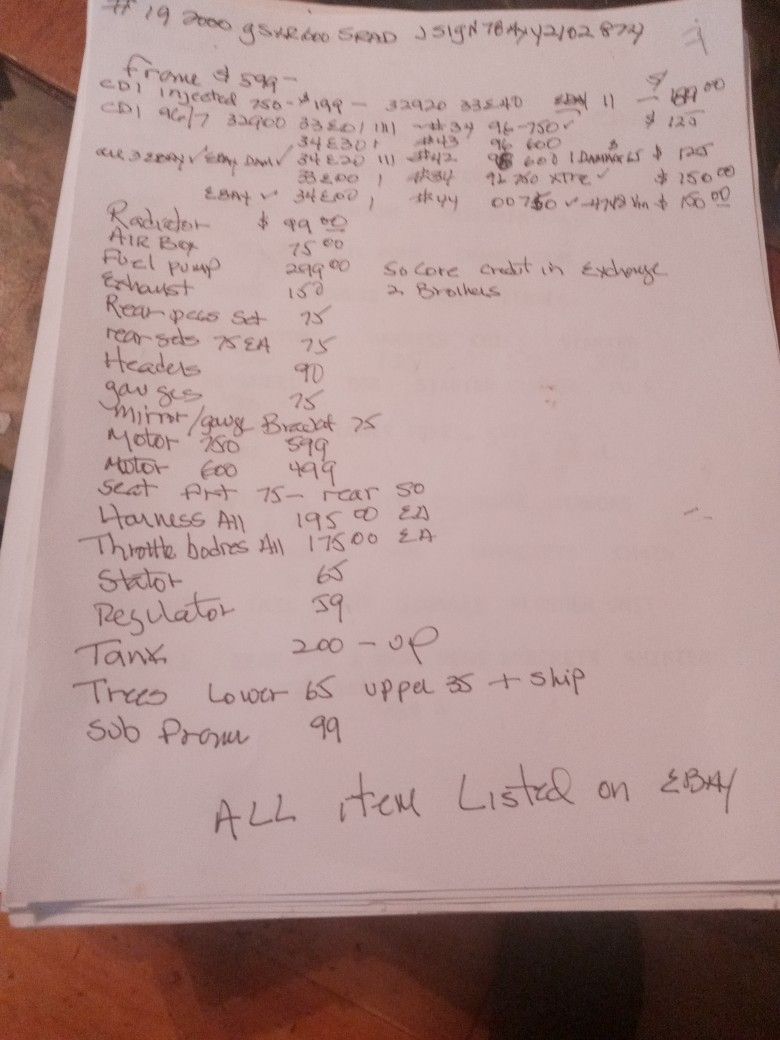 # 19 2000 gSXR600 SRAD JS1gN7BAxY2102874
Frame $ 599-
CDI injected 750-$199- 32920 33E40 EBAY II - 00
CDI 96/7 32900 33E01 IIII #34 96-750✓ $ 125
34E30 I #43 96 600
ALL 3 EBAY ✓ EBAY DAM ✓ 34E20 III #42 600 1 DAMAGE $ 125
33E00 I 750 XTRE ✓ $ 150 00
EBAY ✓ 34E00 I #44 00750 ✓ $ 150 00
Radiator $ 99 00
AIR Box 75 00
Fuel pump 299 00 50 Core credit in Exchange
Exhaust 150 2 Brothers
Rear pegs set 75
rear sets 75 EA 75
Headers 90
gauges 75
Mirror/gauge Bracket 75
Motor 750 599
Motor 600 499
Seat frt 75- rear 50
Harness All 195 00 EA
Throttle bodies All 175 00 EA
Stator 65
Regulator 59
Tank 200 - up
Trees Lower 65 upper 35 + ship
Sub Frame 99
ALL item Listed on EBAY